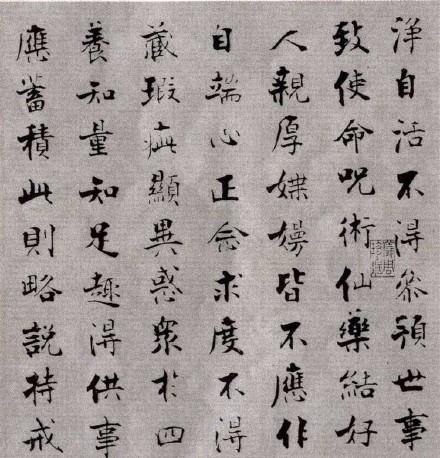 淨自活不得參預世事
致使命呪術仙藥結好
人親厚媟嫚皆不應作
自端心正念求度不得
藏瑕疵顯異惑衆於四
養知量知足趣得供事
應蓄積此則略説持戒